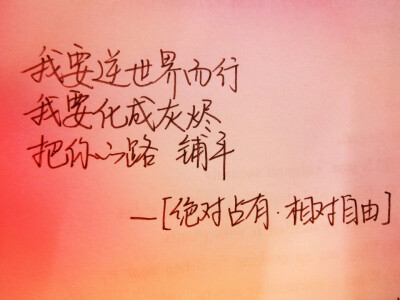 我要逆世界而行
我要化成灰烬
把你心路 铺平
—[绝对占有·相对自由]